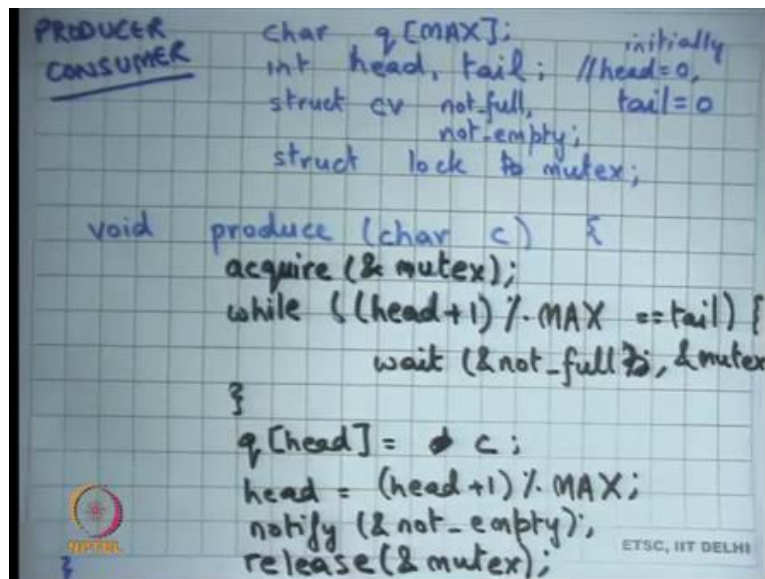 PRODUCER char q[MAX]; initially
CONSUMER int head, tail; //head=0,
struct cv not_full, tail=0
not_empty;
struct lock mutex;
void produce (char c) {
acquire (& mutex);
while ((head+1) % MAX == tail) {
wait (&not_full, &mutex
}
q[head] = c;
head = (head+1) % MAX;
notify (&not_empty);
release(& mutex);
}
NPTEL
ETSC, IIT DELHI